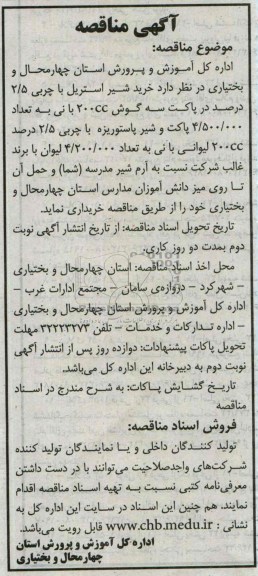 آگهی مناقصه
موضوع مناقصه:
اداره کل آموزش و پرورش استان چهارمحال و
بختیاری در نظر دارد خرید شیر استریل با چربی ۲/۵
درصد در پاکت سه گوش ۲۰۰cc با نی به تعداد
۴/۵۰۰/۰۰۰ پاکت و شیر پاستوریزه با چربی ۲/۵ درصد
۲۰۰cc لیوانی با نی به تعداد ۴/۲۰۰/۰۰۰ لیوان با برند
غالب شرکت نسبت به آرم شیر مدرسه (شما) و حمل آن
تا روی میز دانش آموزان مدارس استان چهارمحال و
بختیاری خود را از طریق مناقصه خریداری نماید.
تاریخ تحویل اسناد مناقصه: از تاریخ انتشار آگهی نوبت
دوم بمدت دو روز کاری.
محل اخذ اسناد مناقصه: استان چهارمحال و بختیاری
– شهرکرد – دروازه‌ی سامان – مجتمع ادارات غرب –
اداره کل آموزش و پرورش استان چهارمحال و بختیاری
– اداره تدارکات و خدمات – تلفن ۳۲۲۲۳۲۷۳ مهلت
تحویل پاکات پیشنهادات: دوازده روز پس از انتشار آگهی
نوبت دوم به دبیرخانه این اداره کل می‌باشد.
تاریخ گشایش پاکات: به شرح مندرج در اسناد
مناقصه
فروش اسناد مناقصه:
تولید کنندگان داخلی و یا نمایندگان تولید کننده
شرکت‌های واجدصلاحیت می‌توانند با در دست داشتن
معرفی‌نامه کتبی نسبت به تهیه اسناد مناقصه اقدام
نمایند. هم چنین این اسناد در سایت این اداره کل به
نشانی : www.chb.medu.ir قابل رویت می‌باشد.
اداره کل آموزش و پرورش استان
چهارمحال و بختیاری